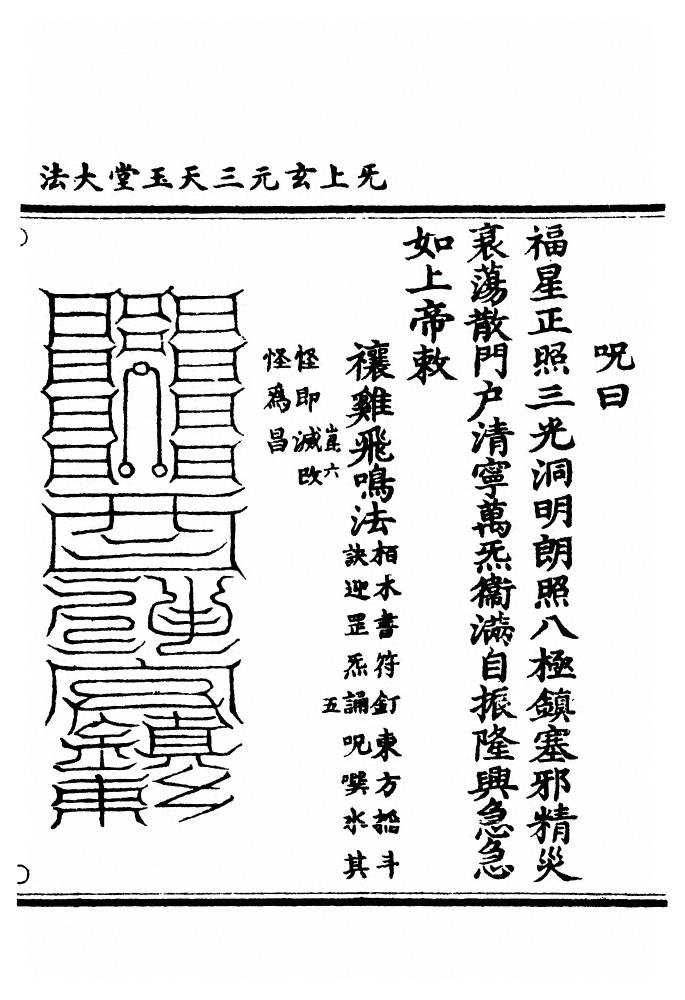 旡上玄元三天玉堂大法
呪曰
福星正照三光洞明朗照八極鎮塞邪精災
衰蕩散門户清寧萬炁衞滿自振隆興急急
如上帝敕
禳雞飛鳴法栢木書符釘東方掐斗
訣迎罡炁誦呪噀水其
崑六 五
怪即滅攺
怪爲昌